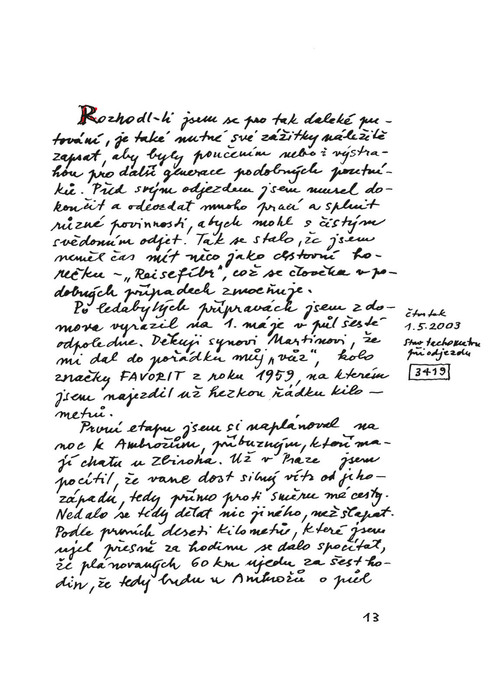 Rozhodl-li jsem se pro tak daleké pu-
tování, je také nutné své zážitky náležitě
zapsat, aby byly poučením nebo i výstra-
hou pro další generace podobných poutní-
ků. Před svým odjezdem jsem musel do-
končit a odevzdat mnoho prací a splnit
různé povinnosti, abych mohl s čistým
svědomím odjet. Tak se stalo, že jsem
neměl čas mít něco jako cestovní ho-
rečku – „Reisefíbr", což se člověka v po-
dobných případech zmocňuje.
Po ledabylých přípravách jsem z do-
mova vyrazil na 1. máje v půl šesté
odpoledne. Děkuji synovi Martinovi, že
mi dal do pořádku můj „vůz", kolo
značky FAVORIT z roku 1959, na kterém
jsem najezdil už hezkou řádku kilo-
metrů.
čtvrtek
1.5.2003
Stav tachometru
při odjezdu
3419
První etapu jsem si naplánoval na
noc k Ambrožům, příbuzným, kteří ma-
jí chatu u Zbiroha. Už v Praze jsem
pocítil, že vane dost silný vítr od jiho-
západu, tedy přímo proti směru mé cesty.
Nedalo se tedy dělat nic jiného, než šlapat.
Podle prvních deseti kilometrů, které jsem
ujel přesně za hodinu se dalo spočítat,
že plánovaných 60 km ujedu za šest ho-
din, že tedy budu u Ambrožů o půl
13